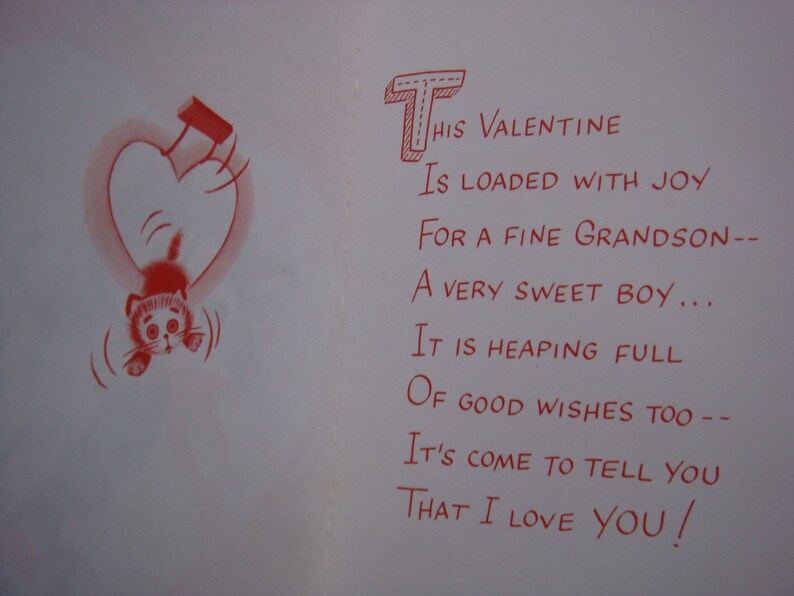 This Valentine
Is loaded with joy
For a fine Grandson--
A very sweet boy...
It is heaping full
Of good wishes too--
It's come to tell you
That I love YOU!